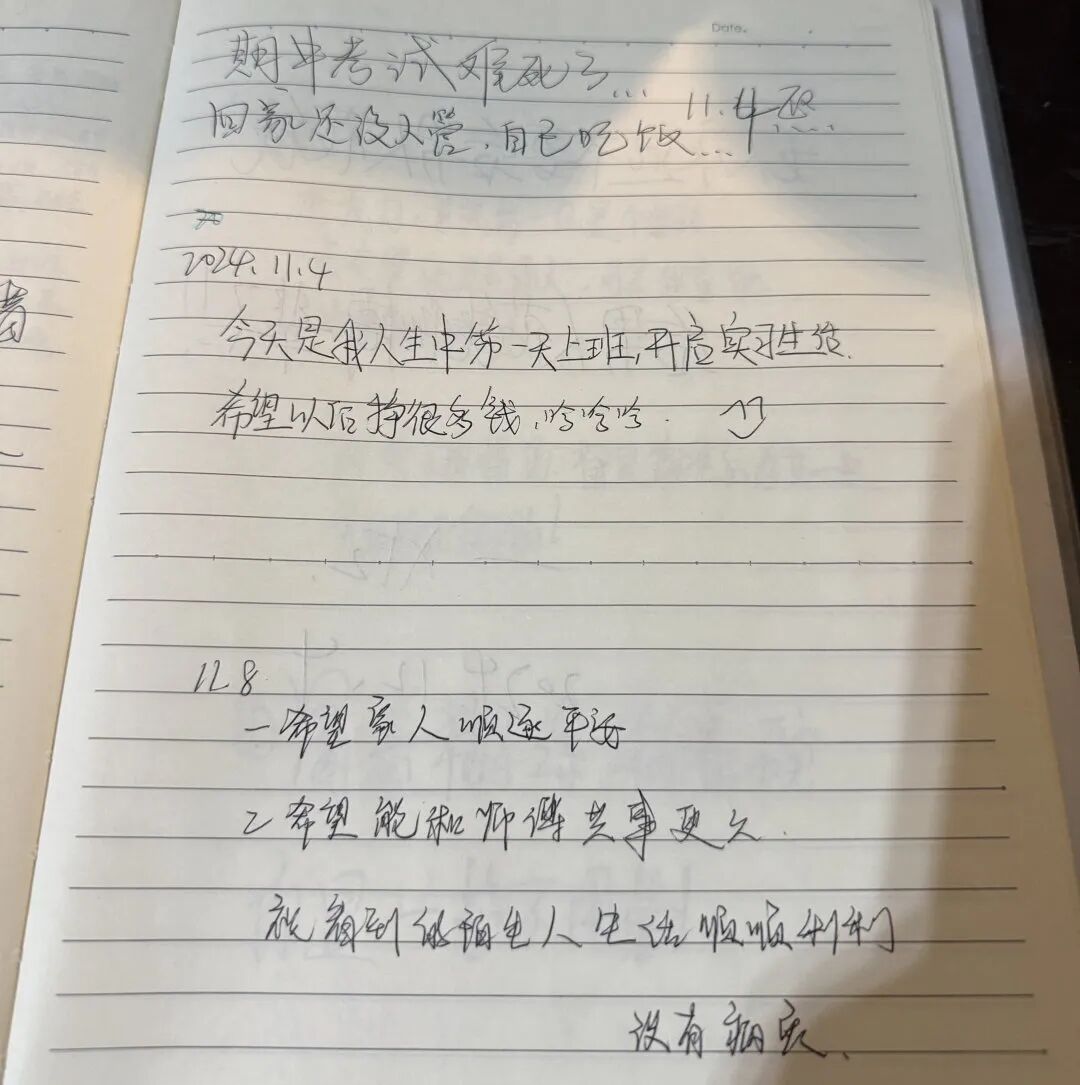 Date.
期中考试难死了...
11.4 思...
回家还没人管，自己吃饭...
2024.11.4
今天是我人生中第一天上班，开启实习生活.
希望以后挣很多钱，哈哈哈.
11.8
一希望家人顺遂平安
2希望能和师傅共事更久.
祝看到的陌生人生活顺顺利利
没有病灾.